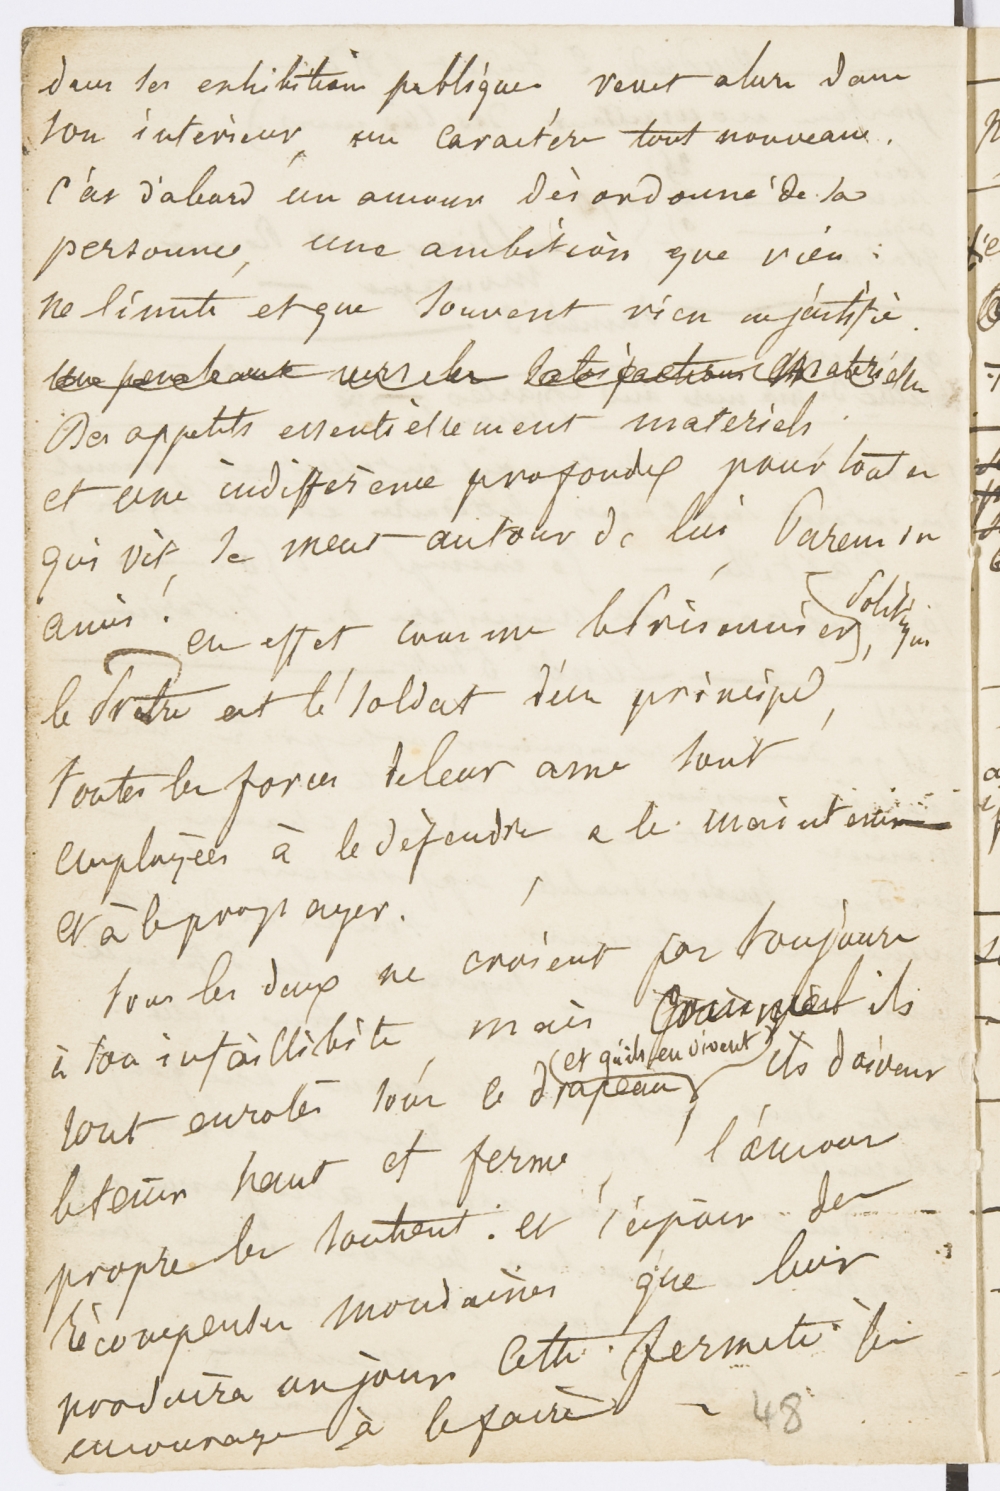 dans ses exhibitions publiques revet alors dans
son intérieur, un caractère tout nouveau.
C'est d'abord un amour désordonné de sa
personne, une ambition que rien
ne limite et que souvent rien ne justifie.
une penchant vers les satisfactions matérielles
Des appetits essentiellement materiels
et une indifférence profonde pour tout ce
qui vit, se meut autour de lui, Parents ou
amis!
en effet comme le Prisonnier, Politique
le Prêtre est le soldat d'un principe,
toutes les forces de leur ame sont
employées à le défendre a le maintenir
et à le propager.
tous les deux ne croient pas toujours
à son infaillibilité, mais ils
(et qu'ils en vivent)
sont enrolés sous le drapeau, ils doivent
le tenir haut et ferme, l'amour
propre les soutient. et l'espoir des
récompenses mondaines que leur
produira un jour cette fermeté les
encourage à le faire
48